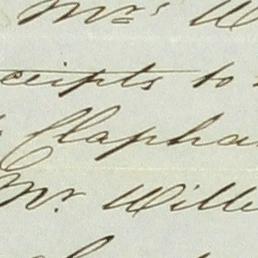 Mrs W
ceipts to
Clapha
Mr. Wille